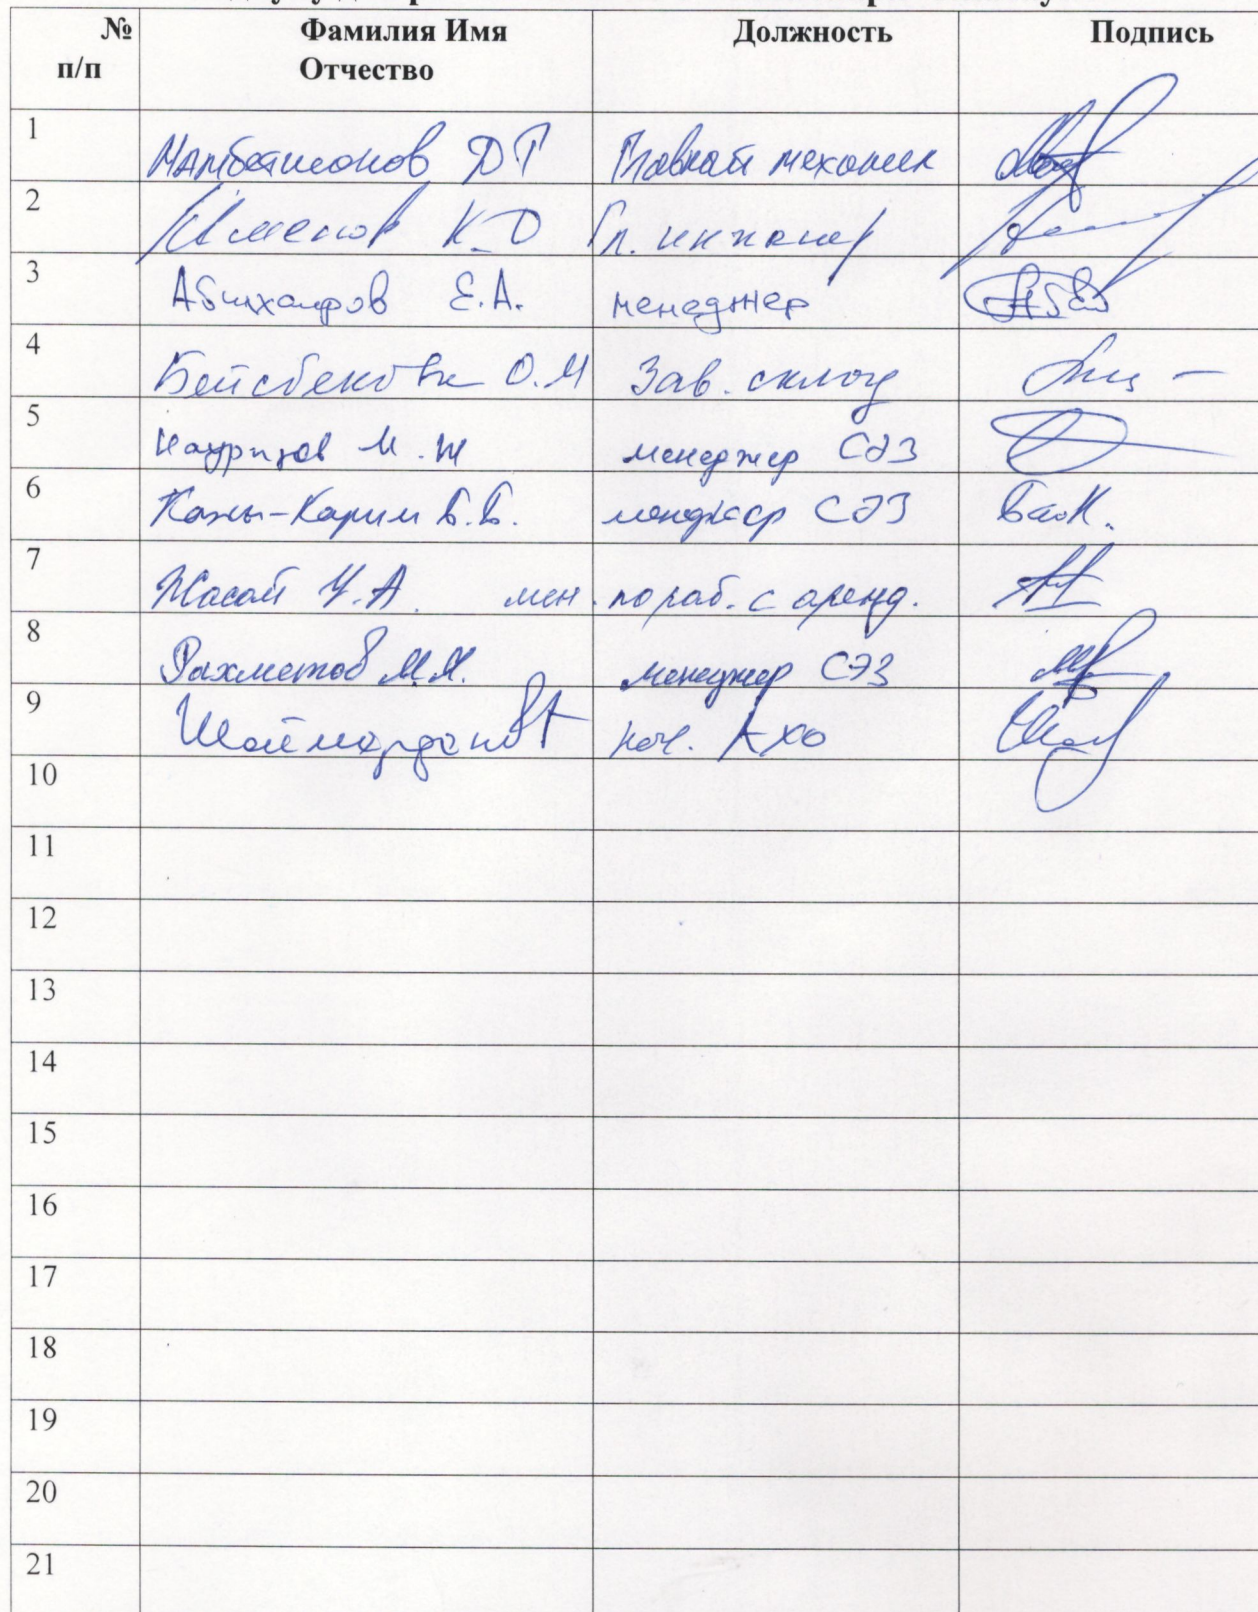 № Фамилия Имя Должность Подпись
п/п Отчество
1
Д Т Главный механик
2
К.О Гл. инженер
3
Абилхаиров Е.А. менеджер
4
Бейсбекова О.М Зав. склад
5
Наурызов М.Ж менеджер СЭЗ
6
Кажы-Карим Б.Б. менджер СЭЗ
7
Жасай У.А. мен. по раб. с аренд.
8
Рахметов М.М. менеджер СЭЗ
9
Шаймарданов А нач. АХО
10
11
12
13
14
15
16
17
18
19
20
21